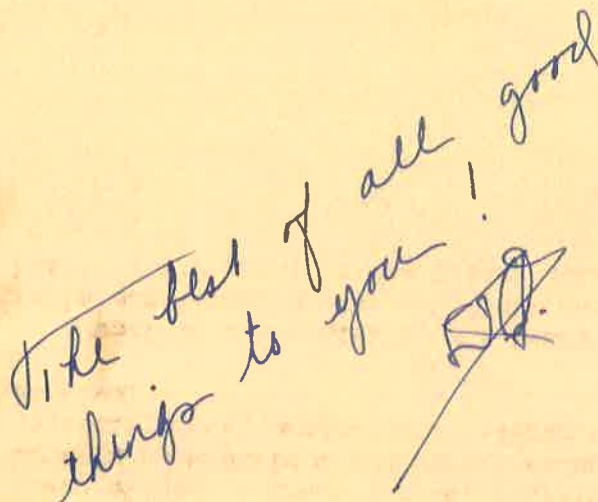 The best of all good
things to you!